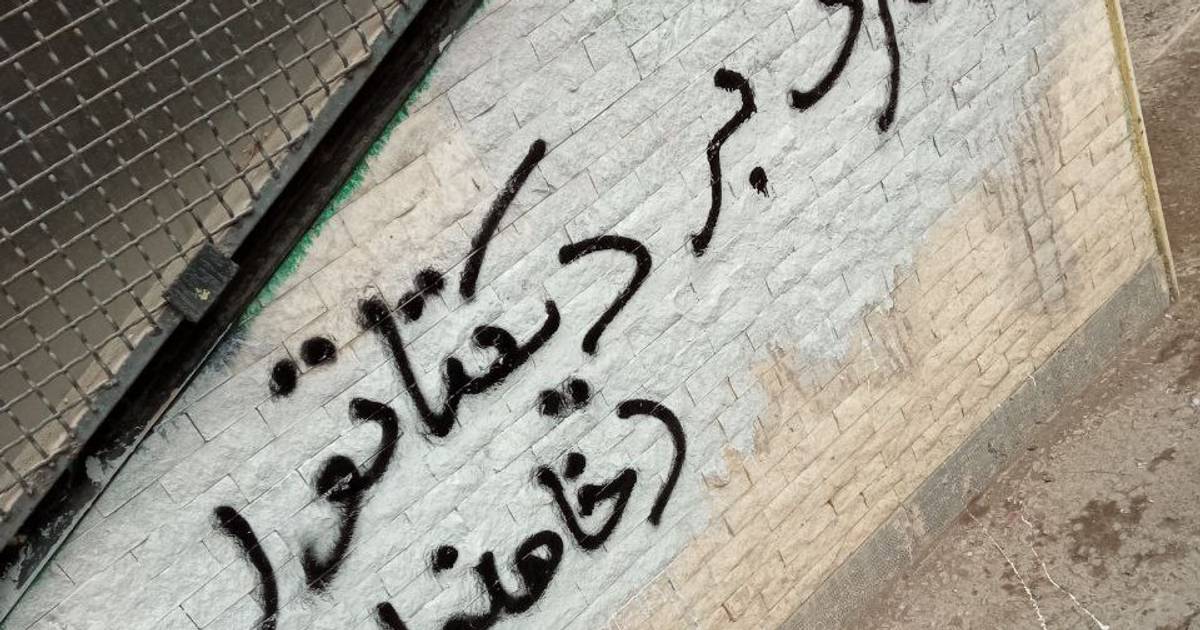 بر دیکتاتور
خامنه